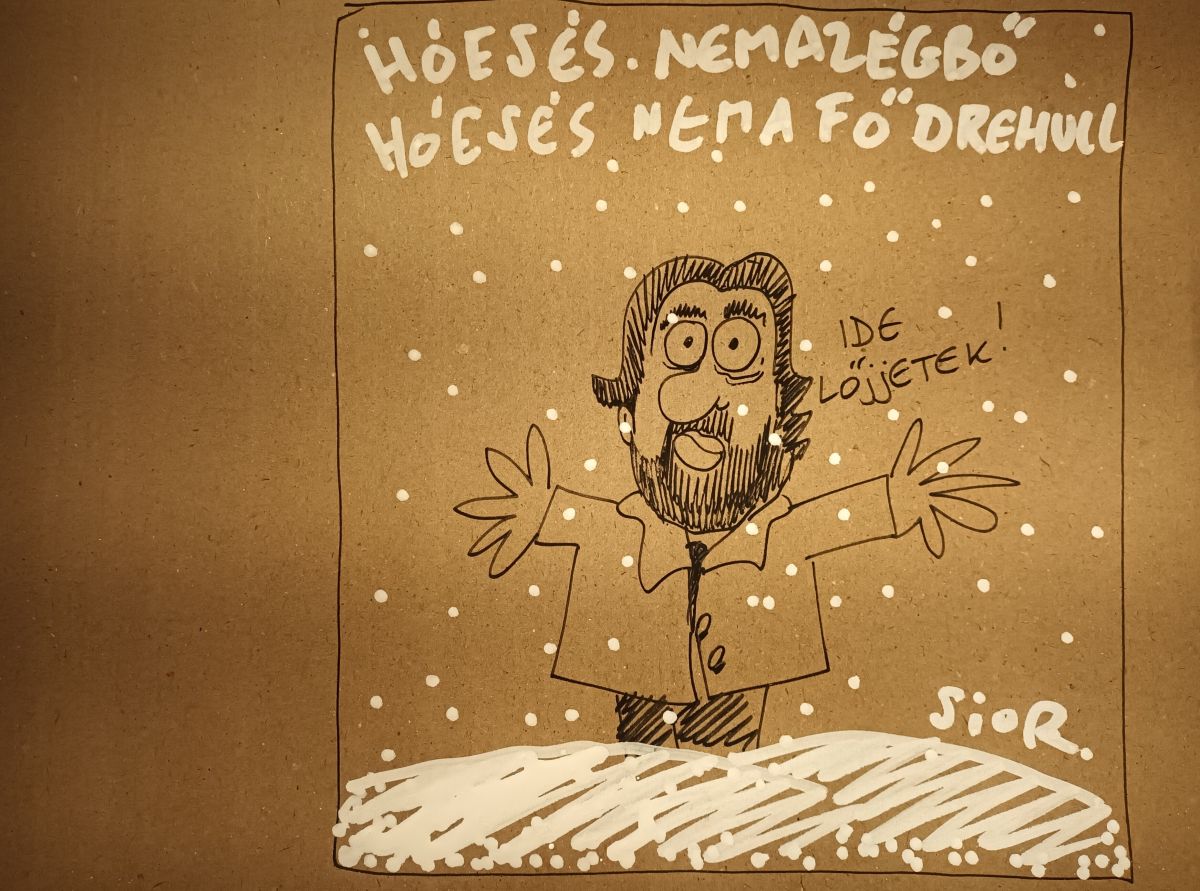 HÓESÉS. NEMAZÉGBŐ
HÓESÉS NEMA FŐDREHULL
IDE
LŐJJETEK!
SIOR.